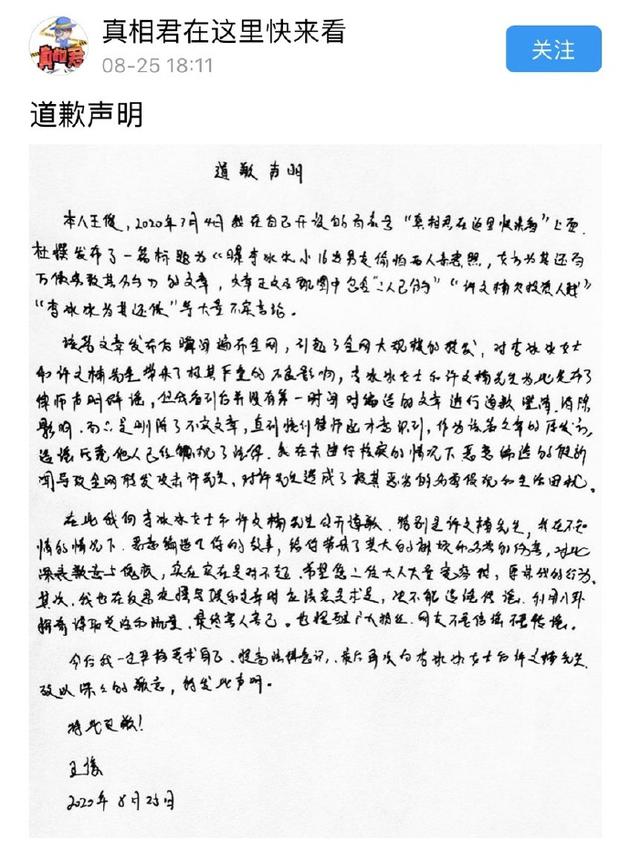 真相君在这里快来看
08-25 18:11
关注
真相君
道歉声明
道歉声明
本人王俊,2020年7月4日我在自己开设的百家号“真相君在这里快来看”上面
杜撰发布了一篇标题为《曝李冰冰小16岁男友
的文章,文章正文及配图中包含 “许文楠欠投资人钱”
“李冰冰为其还债”等大量不实言论。
该篇文章发布后瞬间遍布全网,引起了全网大规模的转发,对李冰冰女士
和许文楠先生带来了极其严重的不良影响,李冰冰女士和许文楠先生为此发布了
律师声明辟谣,但我看到后并没有第一时间对编造的文章进行道歉澄清、消除
影响,而只是删除了不实文章,直到收到律师函才意识到,作为该篇文章的原发方,
造谣污蔑他人已经触犯了法律。我在未进行核实的情况下恶意编造的假新
闻导致全网转发攻击许先生,对许先生造成了极其恶劣的名誉侵犯和生活困扰。
在此我向李冰冰女士和许文楠先生公开道歉。特别是许文楠先生,我在不知
情的情况下,恶意编造了你的故事,给你带来了莫大的 和名誉的伤害,对此
深表歉意与愧疚,实在实在是对不起。希望您二位大人大量宽容 ,原谅我的行为。
其次,我也在反思 文章时应该实事求是,决不能造谣传谣、利用八卦
新闻谋取 和流量,最终害人害己。也提醒广大粉丝、网友不要信谣不要传谣。
今后我一定严格要求自己,提高法律意识,最后再次向李冰冰女士和许文楠先生
致以深深的歉意,特发此声明。
特此更正!
王俊
2020年8月25日